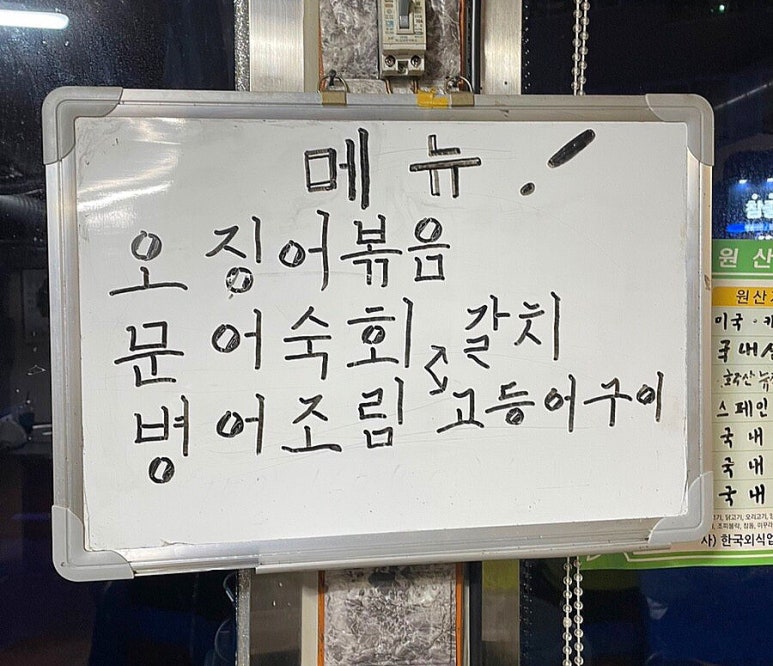 메뉴!
오징어볶음
문어숙회 갈치
병어조림 고등어구이
원산
원산지
미국
국내산
스페인
국내
국내
국내
사) 한국외식업